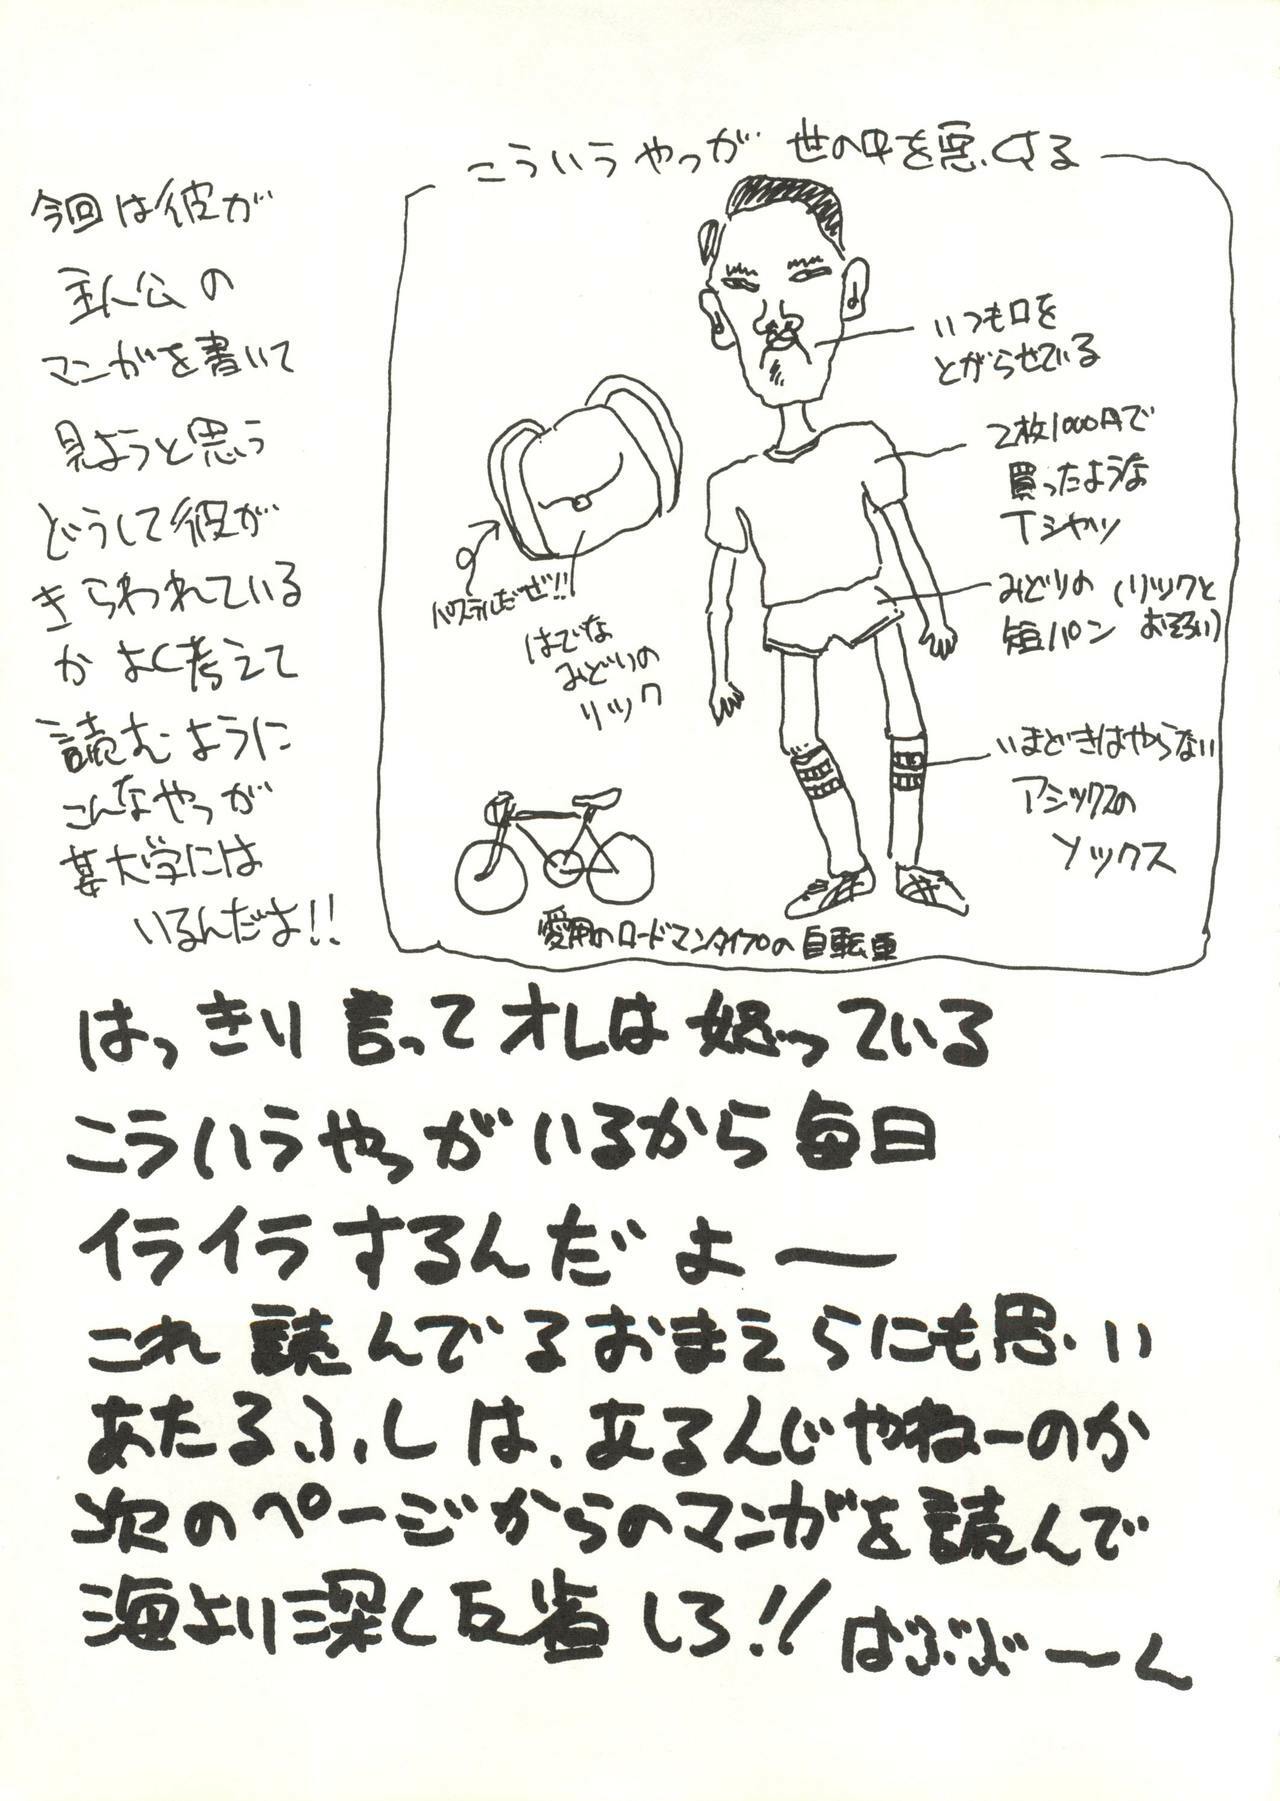 こういうやつが 世の中を悪くする
今回は彼が
主人公の
マンガを書いて
見ようと思う
どうして彼が
きらわれている
か よく考えて
読むように
こんなやつが
某大学には
いるんだよ!!
いつも口を
とがらせている
2枚1000円で
買ったような
Tシャツ
みどりの (リックと
短パン おそろい)
いまどきはやらない
アシックスの
ソックス
パステルだぜ!!
はでな
みどりの
リック
愛用のロードマンタイプの自転車
はっきり言ってオレは怒っている
こういうやつがいるから毎日
イライラするんだよー
これ読んでるおまえらにも思い
あたるふしは、あるんじゃねーのか
次のページからのマンガを読んで
海より深く反省しろ!! ばぶぶーん